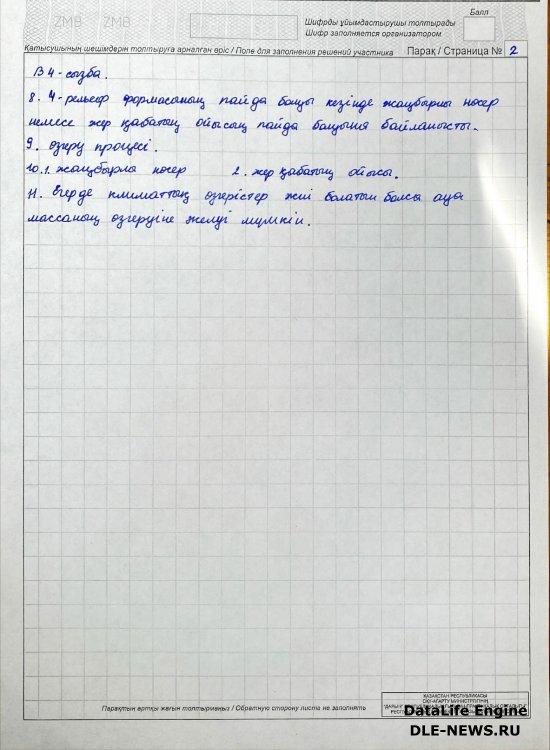 ZMB ZMB
Шифрды ұйымдастырушы толтырады
Шифр заполняется организатором
Балл
Қатысушының шешімдерін толтыруға арналған өріс / Поле для заполнения решений участника Парақ / Страница № 2
В 4-сызба.
8. 4-рельеф формасының пайда болуы кезінде жаңбырлы нөсер
немесе жер қабатың ойысың пайда болуына байланысты.
9. өзгеру процесі.
10.1. жаңбырлы нөсер 2. жер қабатың ойысы.
11. Егерде климаттық өзгерістер жиі болатын болсы ауа
массаның өзгеруіне желуі мүмкін.
Парақтың артқы жағын толтырмаңыз / Обратную сторону листа не заполнять
ҚАЗАҚСТАН РЕСПУБЛИКАСЫ
ОҚУ-АҒАРТУ МИНИСТРЛІГІНІҢ
DataLife Engine
DLE-NEWS.RU